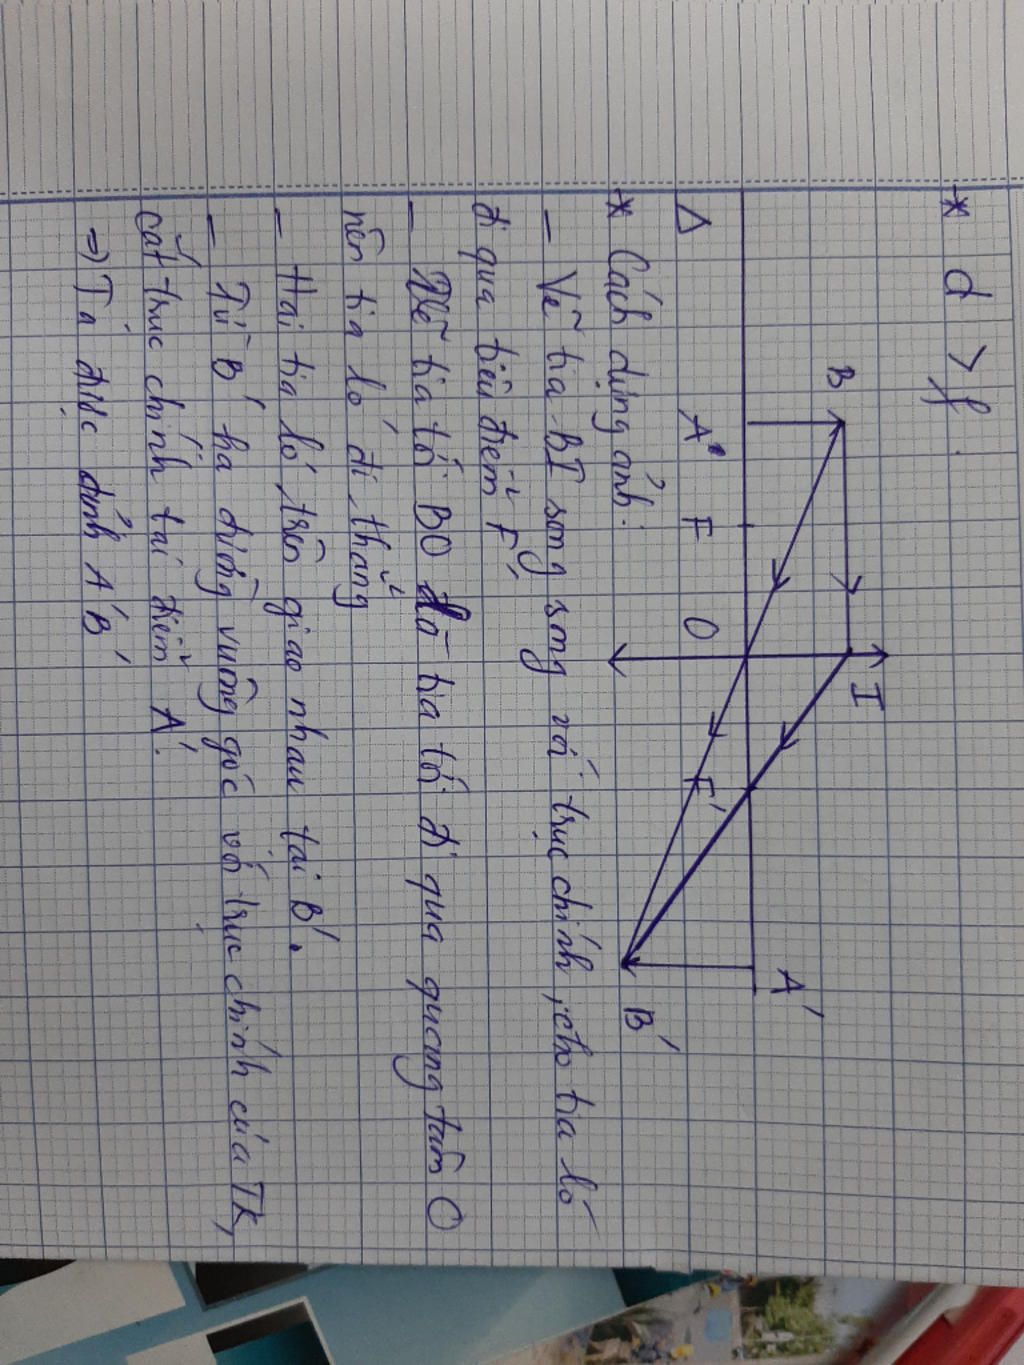 * d > f.
B
I
Δ
A
F
O
F'
A'
B'
* Cách dựng ảnh:
- Vẽ tia BI song song với trục chính, cho tia ló
đi qua tiêu điểm F'
- Vẽ tia tới BO do tia tới đi qua quang tâm O
nên tia ló đi thẳng
- Hai tia ló trên giao nhau tại B'.
- Từ B' hạ đường vuông góc với trục chính của TK,
cắt trục chính tại điểm A'.
=> Ta được ảnh A'B'